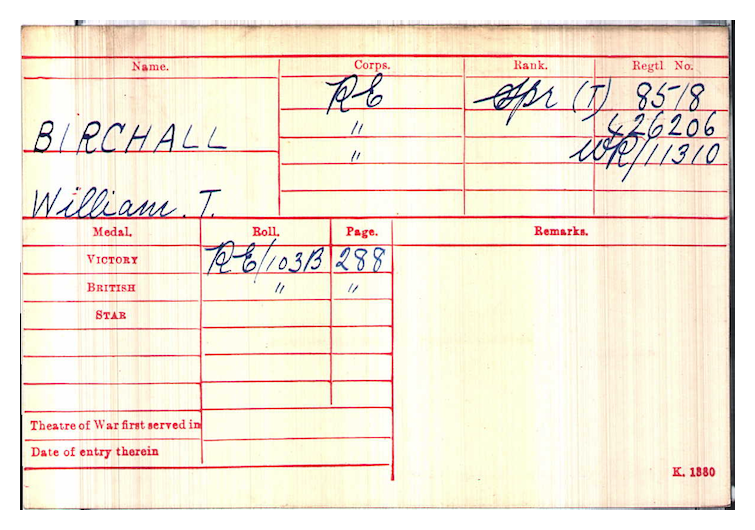 Name. Corps. Rank. Regtl No.
RE Spr (T) 8518
" 426206
BIRCHALL
" WR/11310
William. T.
Medal. Roll. Page. Remarks.
VICTORY RE/103B 288
BRITISH " "
STAR
Theatre of War first served in
Date of entry therein
K. 1380